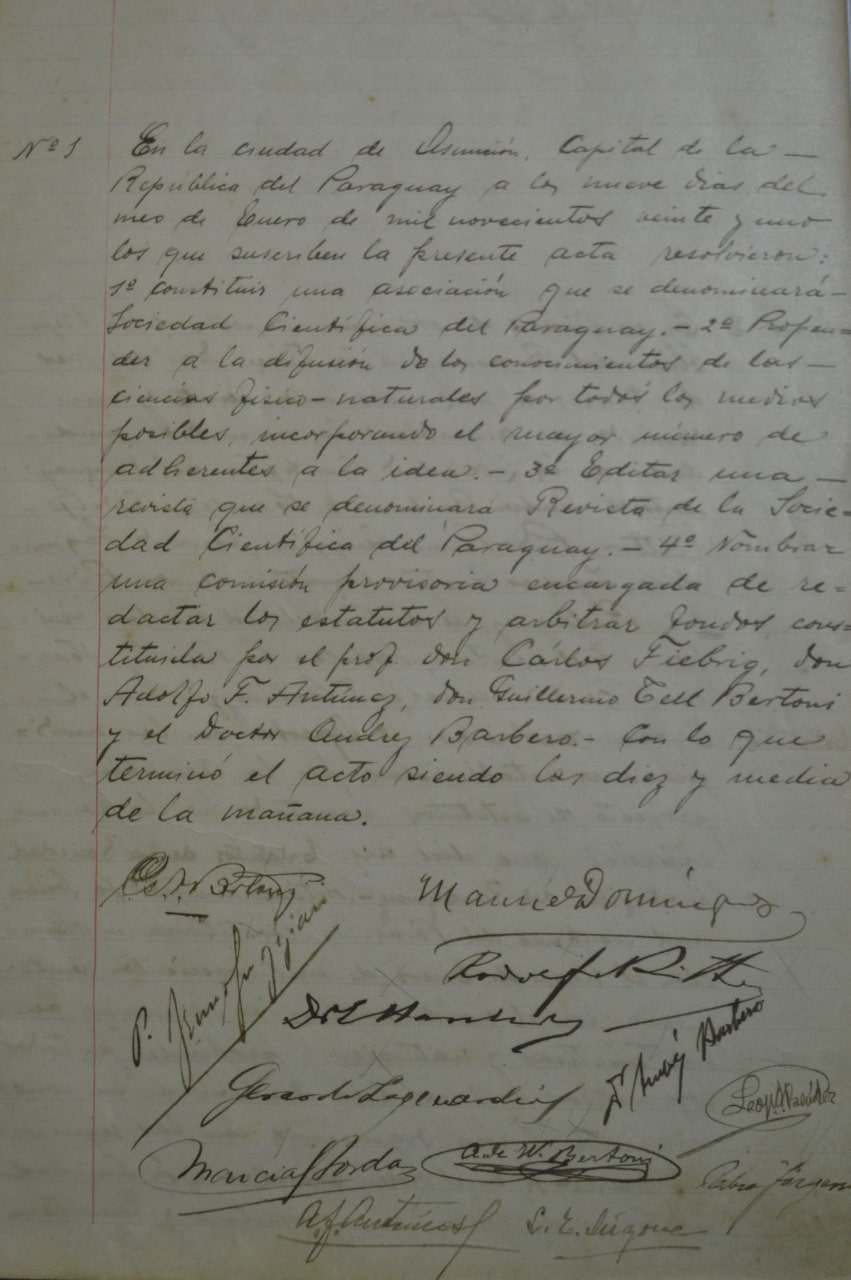 Nº 1 En la ciudad de Asunción, Capital de la —
República del Paraguay a los nueve dias del
mes de Enero de mil novecientos veinte y uno
los que suscriben la presente acta resolvieron:
1º constituir una asociación que se denominará —
Sociedad Científica del Paraguay. — 2º Propen=
der a la difusión de los conocimientos de las —
ciencias físico-naturales por todos los medios
posibles, incorporando el mayor número de
adherentes a la idea. — 3º Editar una —
revista que se denominará Revista de la Socie=
dad Científica del Paraguay. — 4º Nombrar
una comisión provisoria encargada de re=
dactar los estatutos y arbitrar fondos, cons=
tituida por el prof. don Carlos Fiebrig, don
Adolfo F. Antunez, don Guillermo Tell Bertoni
y el Doctor Andrez Barbero. — Con lo que
terminó el acto siendo las diez y media
de la mañana.
Manuel Domínguez
Rodolfo Ritter
Dr Andrés Barbero
Gerardo Laguardia
Marcial Sosa
A. de W. Bertoni
A. F. Antúnez